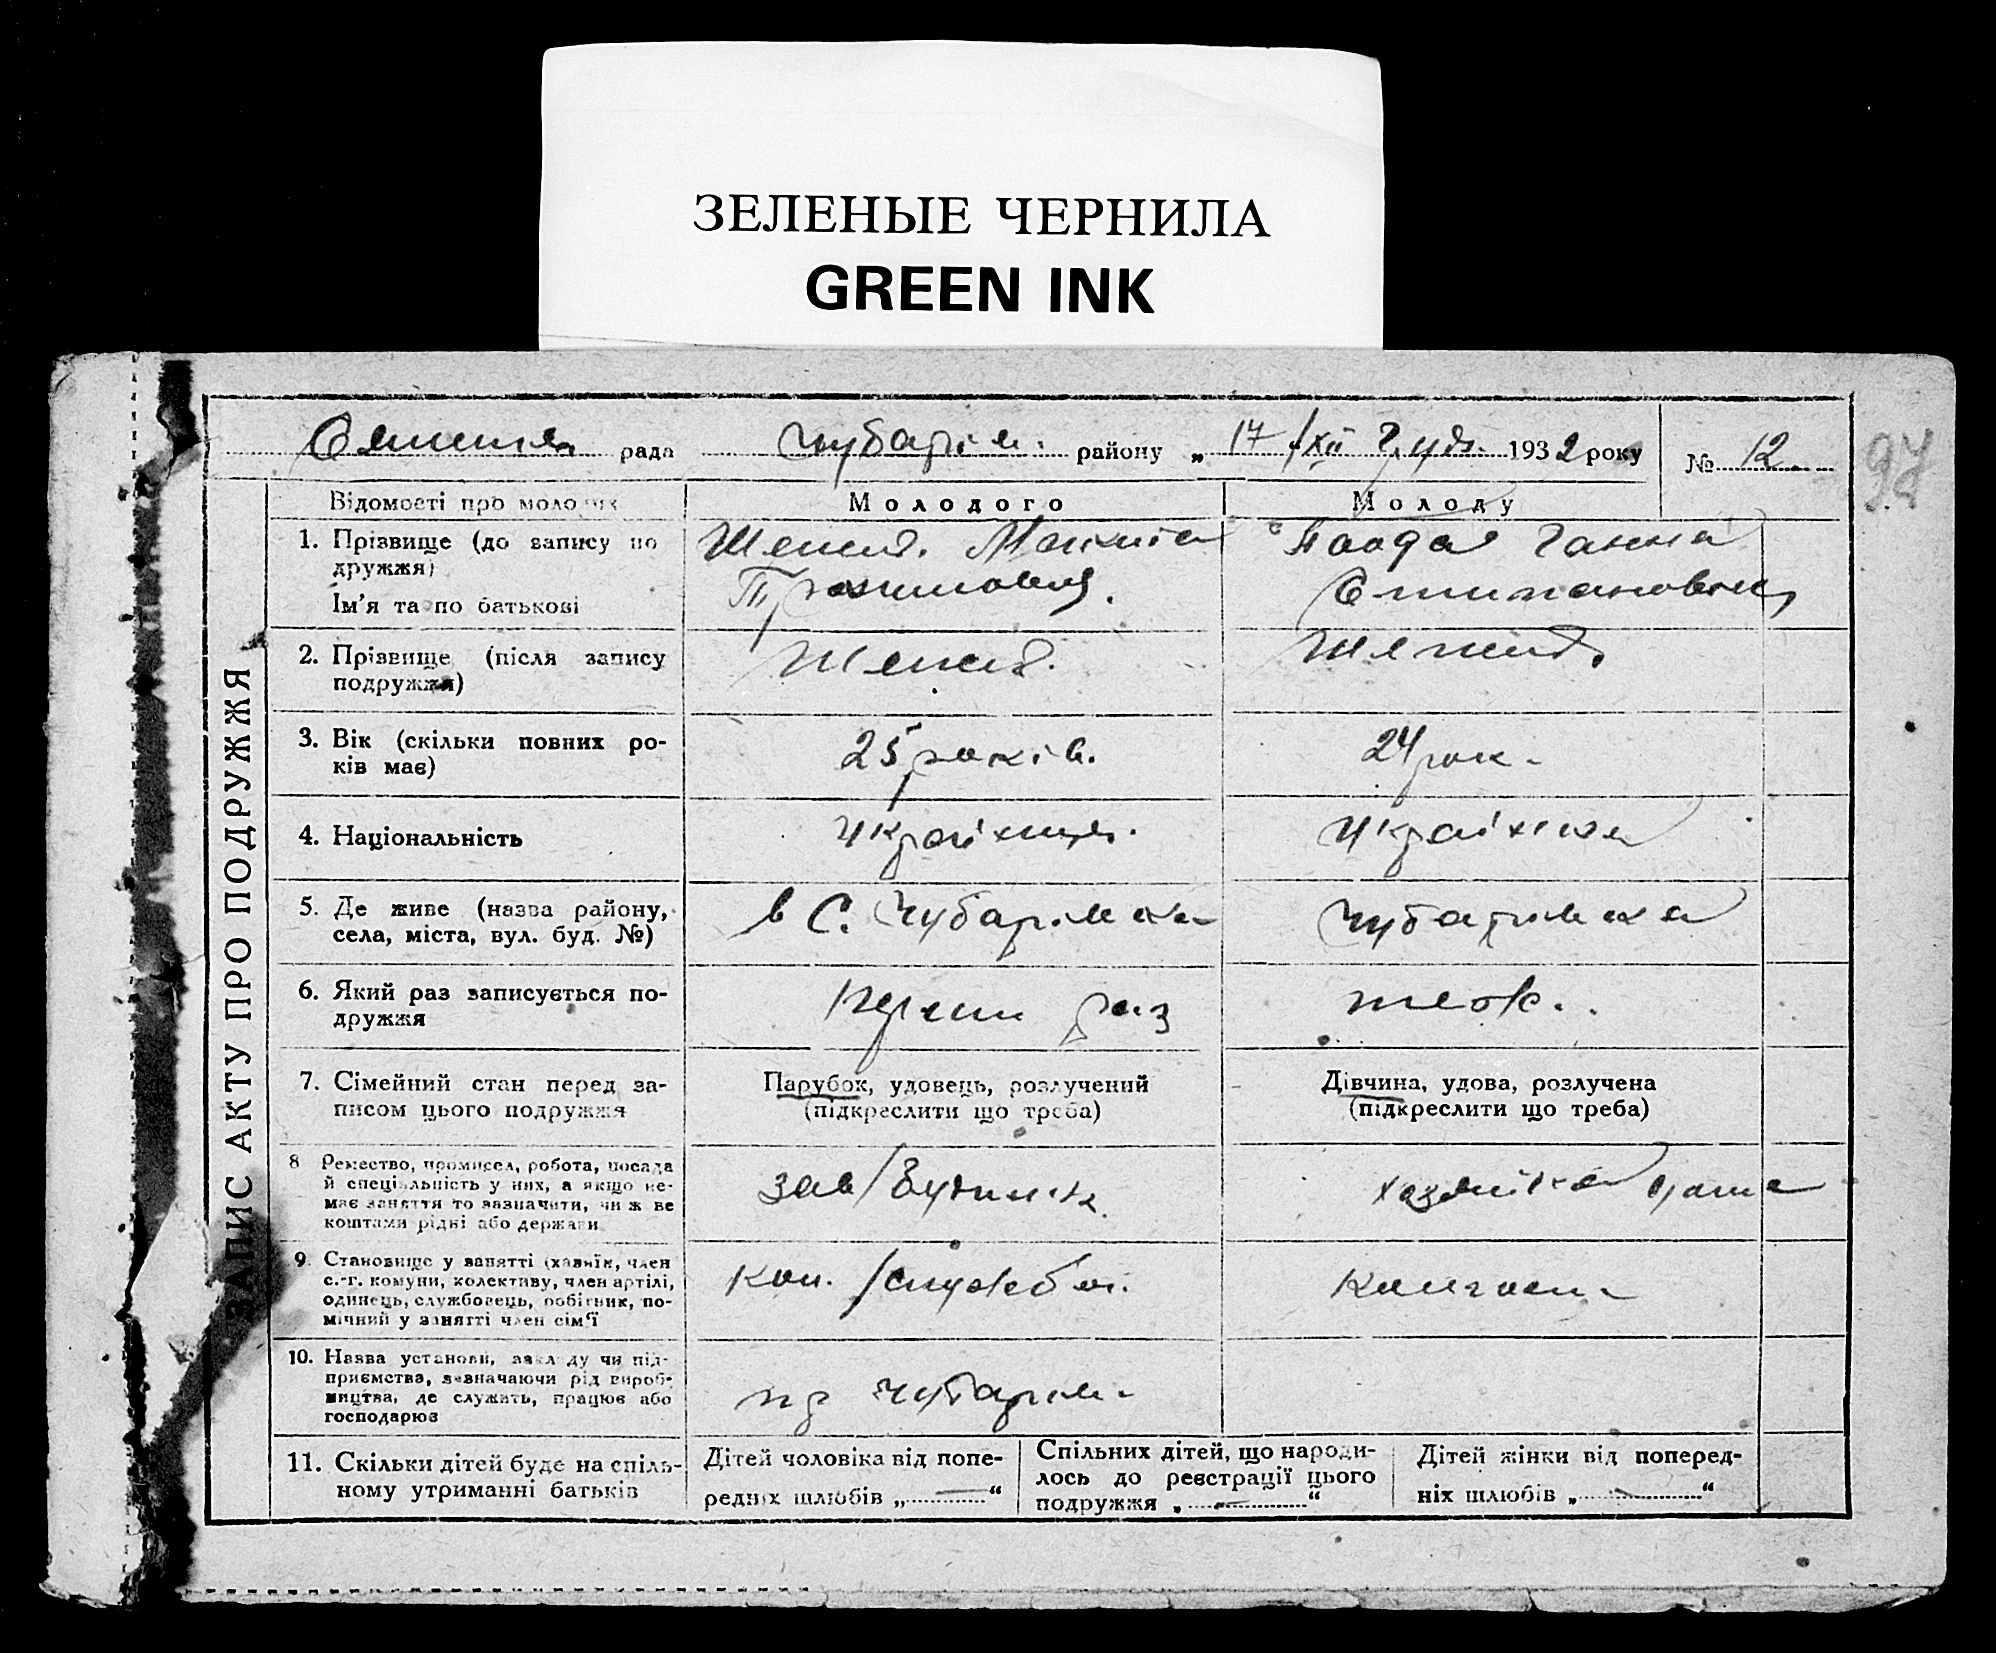 ЗЕЛЕНЫЕ ЧЕРНИЛА
GREEN INK
рада Чубарів. району „ 17 /XII Груд. 1932 року № 12
97
ЗАПИС АКТУ ПРО ПОДРУЖЖЯ
Відомості про молодих
Молодого
Молоду
1. Прізвище (до запису по
дружжя)
Ім'я та по батькові
Ганна
2. Прізвище (після запису
подружжя)
3. Вік (скільки повних ро-
ків має)
25 років.
24 рок.
4. Національність
Українець.
Українка
5. Де живе (назва району,
села, міста, вул. буд. №)
в С. Чубарівка
Чубарівка
6. Який раз записується по-
дружжя
Перший раз
теж.
7. Сімейний стан перед за-
писом цього подружжя
Парубок, удовець, розлучений
(підкреслити що треба)
Дівчина, удова, розлучена
(підкреслити що треба)
8 Ремество, промисел, робота, посада
й спеціяльність у них, а якщо не-
має заняття то зазначити, чи ж ве
коштами рідні або держави
зав/Будинк.
хазяйка дома
9. Становище у занятті (хазяїн, член
с.-г. комуни, колективу, член артілі,
одинець, службовець, робітник, по-
мічний у занятті член сім'ї
кол. /службов.
Колгосп.
10. Назва установи, закладу чи під-
приємства, зазначаючи рід вироб-
ництва, де служить, працює або
господарює
Чубарів.
11. Скільки дітей буде на спіль-
ному утриманні батьків
Дітей чоловіка від попе-
редніх шлюбів „ — “
Спільних дітей, що народи-
лось до реєстрації цього
подружжя „ — “
Дітей жінки від поперед-
ніх шлюбів „ — “